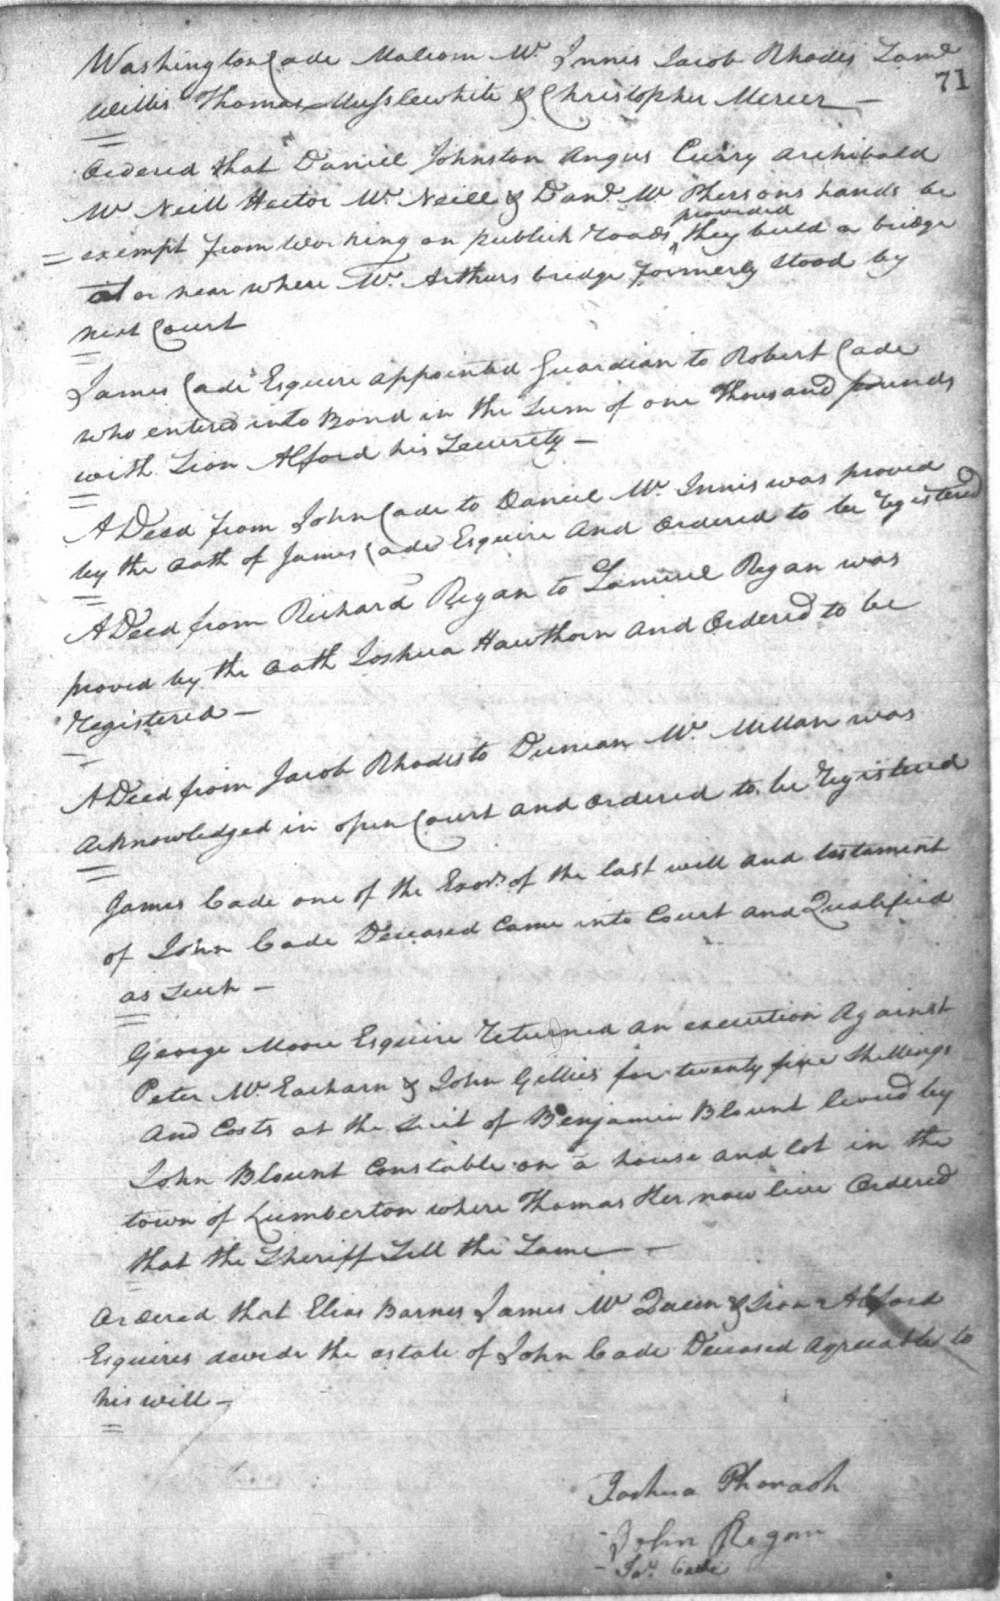 Washington Cade Malcom Mc Innis Jacob Rhodes Saml
71
Willis Thomas Musslewhite & Christopher Mercer —
Ordered that Daniel Johnston Angus Curry Archibald
Mc Neill Hector Mc Neill & Danl Mc Phersons hands be
exempt from working on publick roads provided they build a bridge
at or near where Mc Arthurs bridge formerly stood by
next Court
James Cade Esquire appointed Guardian to Robert Cade
who entered into Bond in the Sum of one thousand pounds
with Sion Alford his Security —
A Deed from John Cade to Daniel Mc Innis was proved
by the oath of James Cade Esquire and Ordered to be registered
A Deed from Richard Regan to Samuel Regan was
proved by the oath Joshua Hawthorn and Ordered to be
registered —
A Deed from Jacob Rhodes to Duncan Mc Millan was
acknowledged in open Court and ordered to be registered
James Cade one of the Exors of the last will and testament
of John Cade Deceased Came into Court and Qualified
as Such —
George Moore Esquire returned an execution against
Peter Mc Eacharn & John Gillies for twenty five Shillings
and Costs at the Suit of Benjamin Blount levied by
John Blount Constable on a house and lot in the
town of Lumberton where Thomas now live Ordered
that the Sheriff Sell the Same —
Ordered that Elias Barnes James Mc Queen & Sion Alford
Esquires devide the estate of John Cade Deceased agreeable to
his will —
Joshua Pharaoh
John Regan
Jas. Cade